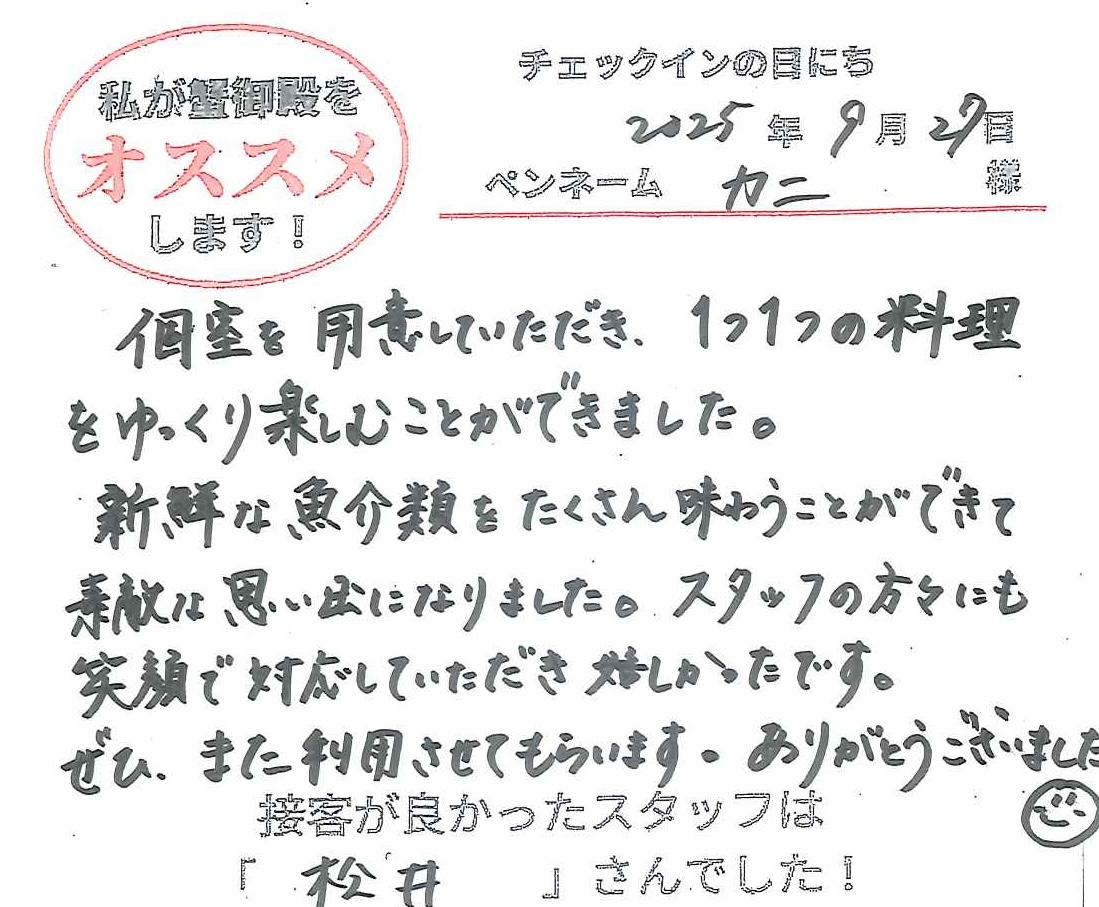 私が蟹御殿を
オススメ
します！
チェックインの日にち
2025年9月27日
ペンネーム カニ 様
個室を用意していただき、1つ1つの料理
をゆっくり楽しむことができました。
新鮮な魚介類をたくさん味わうことができて
素敵な思い出になりました。スタッフの方々にも
笑顔で対応していただき嬉しかったです。
ぜひ、また利用させてもらいます。ありがとうございました
接客が良かったスタッフは
「 松井 」さんでした！